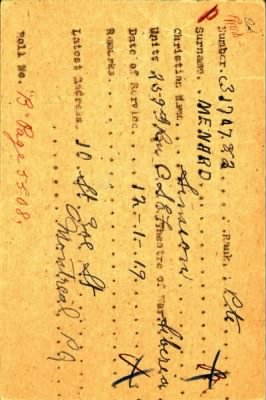 Number. 3174782 Rank. Pte
Surname. MENARD.
Christian Name. Simeon
Units 259th Bn C.S.E.F. Theatre of War Siberia
Date of Service. 12-1-19
Remarks.
Latest Address. 10 St Zoe St
Montreal PQ
Roll No. "B" Page 5508.